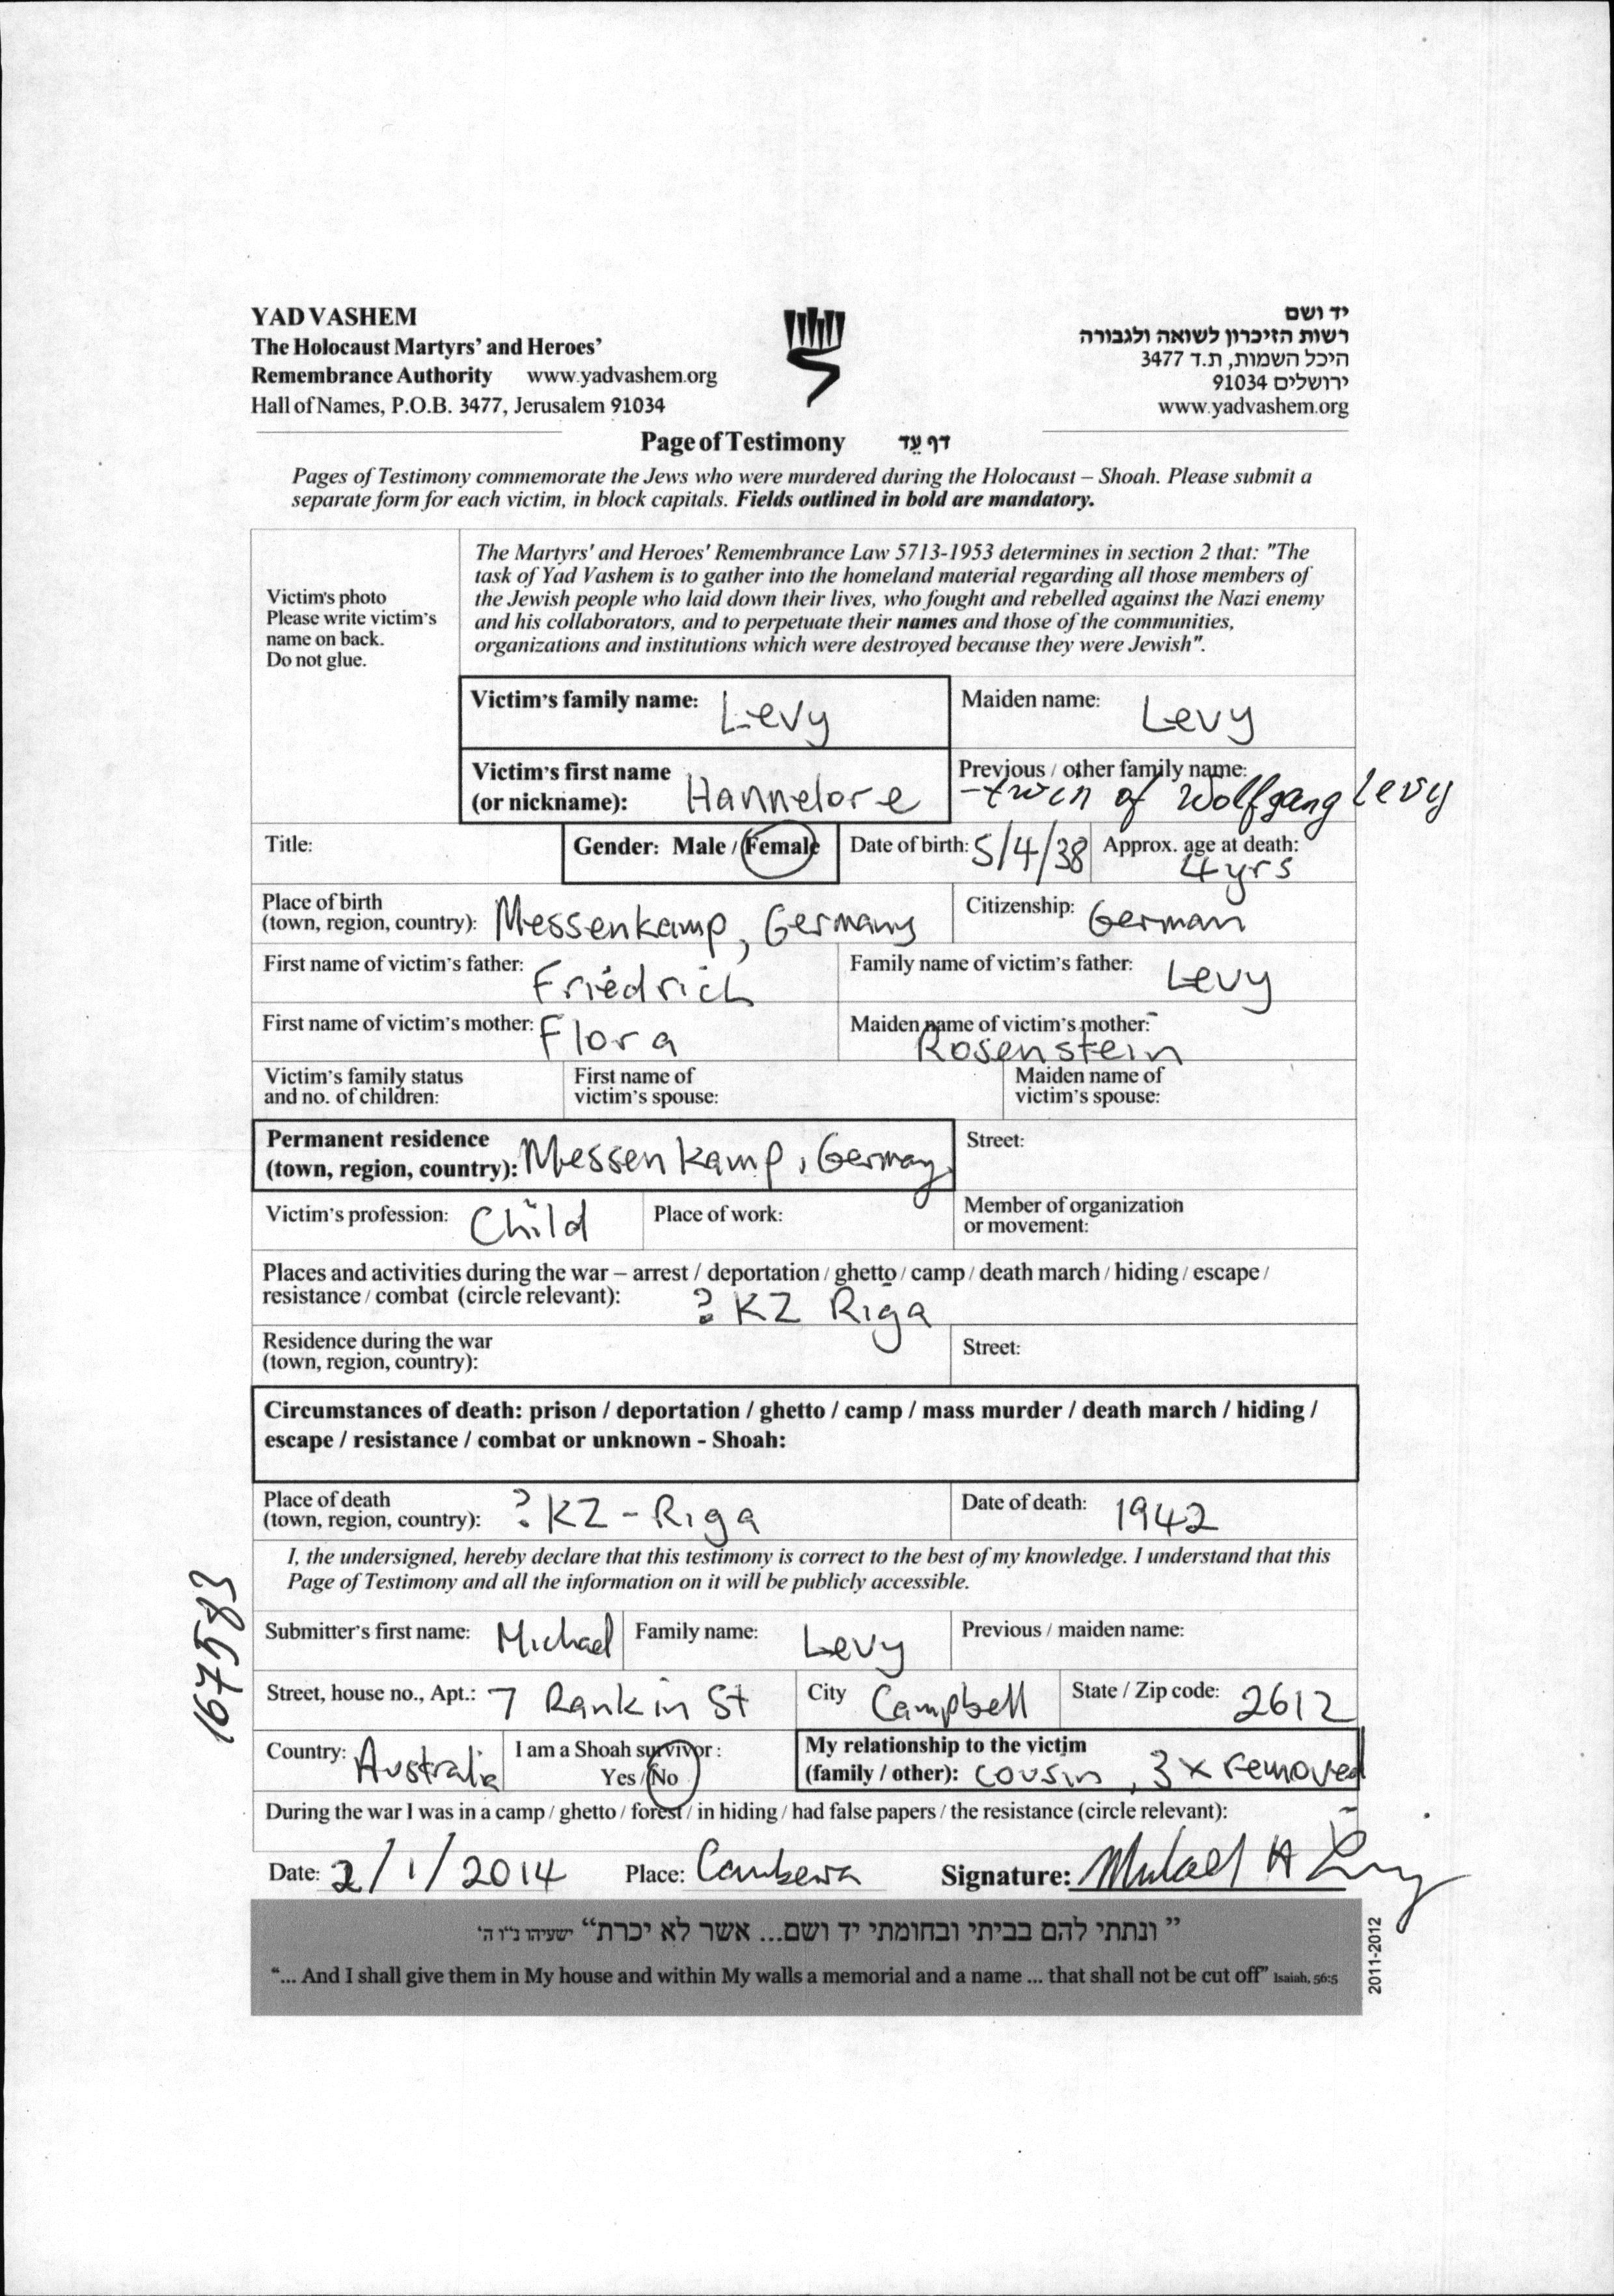 YAD VASHEM
The Holocaust Martyrs' and Heroes'
Remembrance Authority www.yadvashem.org
Hall of Names, P.O.B. 3477, Jerusalem 91034
יד ושם
רשות הזיכרון לשואה ולגבורה
היכל השמות, ת.ד 3477
ירושלים 91034
www.yadvashem.org
Page of Testimony דף עֵד
Pages of Testimony commemorate the Jews who were murdered during the Holocaust – Shoah. Please submit a
separate form for each victim, in block capitals. Fields outlined in bold are mandatory.
Victim's photo
Please write victim's
name on back.
Do not glue.
The Martyrs' and Heroes' Remembrance Law 5713-1953 determines in section 2 that: "The
task of Yad Vashem is to gather into the homeland material regarding all those members of
the Jewish people who laid down their lives, who fought and rebelled against the Nazi enemy
and his collaborators, and to perpetuate their names and those of the communities,
organizations and institutions which were destroyed because they were Jewish".
Victim's family name: Levy
Maiden name: Levy
Victim's first name
(or nickname): Hannelore
Previous / other family name:
-twin of Wolfgang Levy
Title:
Gender: Male / Female
Date of birth: 5/4/38
Approx. age at death:
4 yrs
Place of birth
(town, region, country): Messenkamp, Germany
Citizenship: German
First name of victim's father: Friedrich
Family name of victim's father: Levy
First name of victim's mother: Flora
Maiden name of victim's mother:
Rosenstein
Victim's family status
and no. of children:
First name of
victim's spouse:
Maiden name of
victim's spouse:
Permanent residence
(town, region, country): Messenkamp, Germany
Street:
Victim's profession: Child
Place of work:
Member of organization
or movement:
Places and activities during the war – arrest / deportation / ghetto / camp / death march / hiding / escape /
resistance / combat (circle relevant): ? KZ Riga
Residence during the war
(town, region, country):
Street:
Circumstances of death: prison / deportation / ghetto / camp / mass murder / death march / hiding /
escape / resistance / combat or unknown - Shoah:
Place of death
(town, region, country): ? KZ - Riga
Date of death: 1942
I, the undersigned, hereby declare that this testimony is correct to the best of my knowledge. I understand that this
Page of Testimony and all the information on it will be publicly accessible.
167583
Submitter's first name: Michael
Family name: Levy
Previous / maiden name:
Street, house no., Apt.: 7 Rankin St
City Campbell
State / Zip code: 2612
Country: Australia
I am a Shoah survivor :
Yes / No
My relationship to the victim
(family / other): cousin, 3 x removed
During the war I was in a camp / ghetto / forest / in hiding / had false papers / the resistance (circle relevant):
Date: 2/1/2014 Place: Canberra Signature: Michael A Levy
” ונתתי להם בביתי ובחומתי יד ושם... אשר לא יכרת“ ישעיהו נ"ו ה'
"... And I shall give them in My house and within My walls a memorial and a name ... that shall not be cut off" Isaiah, 56:5
2011-2012